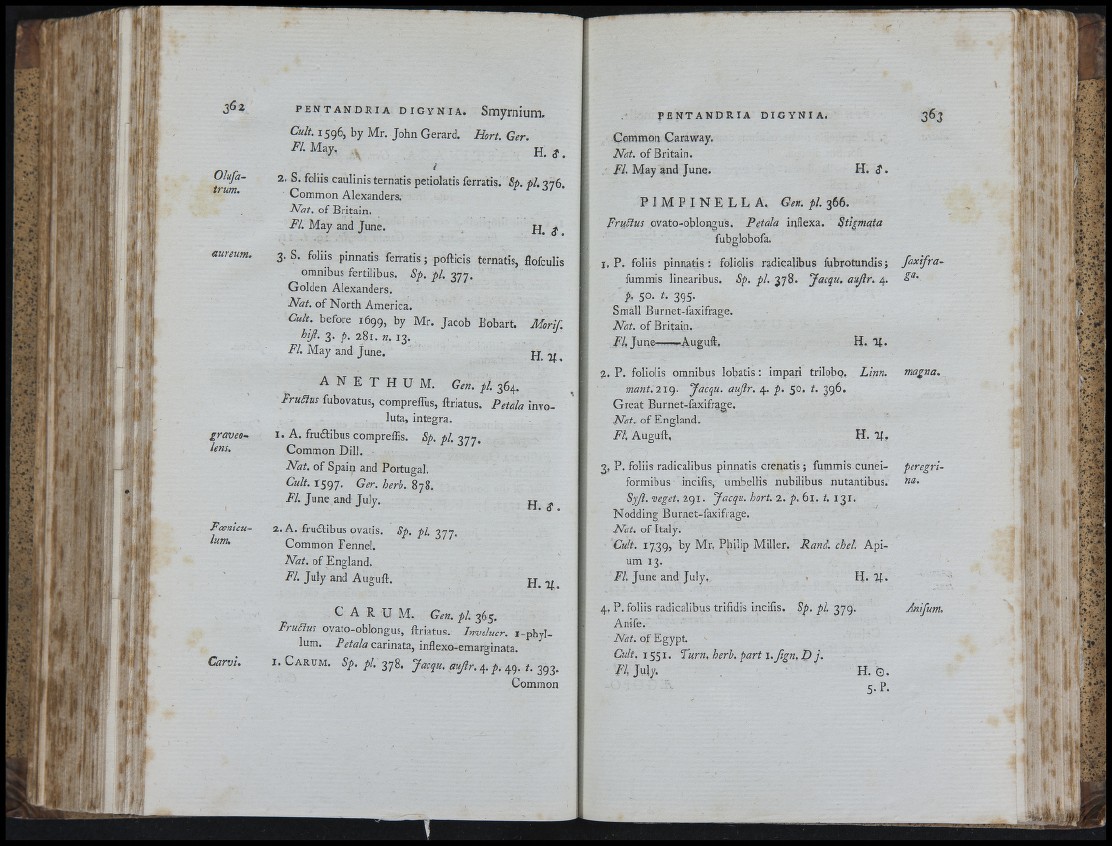 362 PENTANDRIA DIGYNIA. Smyrnium.
Cult. 1596, by Mr. John Gerard. Hort. Ger.
Fl. May. H. ♂.
Oluſa-
trum.
2. S. foliis caulinis ternatis petiolatis ſerratis. Sp. pl. 376.
Common Alexanders.
Nat. of Britain.
Fl. May and June. H. ♂.
aureum. 3. S. foliis pinnatis ſerratis; poſticis ternatis, floſculis
omnibus fertilibus. Sp. pl. 377.
Golden Alexanders.
Nat. of North America.
Cult. before 1699, by Mr. Jacob Bobart. Moriſ.
hiſt. 3. p. 281. n. 13.
Fl. May and June. H. ♃.
ANETHUM. Gen. pl. 364.
Fructus ſubovatus, compreſſus, ſtriatus. Petala invo-
luta, integra.
graveo-
lens.
1. A. fructibus compreſſis. Sp. pl. 377.
Common Dill.
Nat. of Spain and Portugal.
Cult. 1597. Ger. herb. 878.
Fl. June and July. H. ♂.
Fœnicu-
lum.
2. A. fructibus ovatis. Sp. pl. 377.
Common Fennel.
Nat. of England.
Fl. July and Auguſt. H. ♃.
CARUM. Gen. pl. 365.
Fructus ovato-oblongus, ſtriatus. Involucr. 1-phyl-
lum. Petala carinata, inflexo-emarginata.
Carvi. 1. CARUM. Sp. pl. 378. Jacqu. auſtr. 4. p. 49. t. 393.
Common
PENTANDRIA DIGYNIA. 363
Common Caraway.
Nat. of Britain.
Fl. May and June. H. ♂.
PIMPINELLA. Gen. pl. 366.
Fructus ovato-oblongus. Petala inflexa. Stigmata
ſubgloboſa.
1. P. foliis pinnatis: foliolis radicalibus ſubrotundis; ſaxifra-
ſummis linearibus. Sp. pl. 378. Jacqu. auſtr. 4. ga.
p. 50. t. 395.
Small Burnet-ſaxifrage.
Nat. of Britain.
Fl. June——Auguſt. H. ♃.
2. P. foliolis omnibus lobatis: impari trilobo. Linn. magna.
mant. 219. Jacqu. auſtr. 4. p. 50. t. 396.
Great Burnet-ſaxifrage.
Nat. of England.
Fl. Auguſt. H. ♃.
3. P. foliis radicalibus pinnatis crenatis; ſummis cunei- peregri-
formibus inciſis, umbellis nubilibus nutantibus. na.
Syſt. veget. 291. Jacqu. hort. 2. p. 61. t. 131.
Nodding Burnet-ſaxifrage.
Nat. of Italy.
Cult. 1739, by Mr. Philip Miller. Rand. chel. Api-
um 13.
Fl. June and July. H. ♃.
4. P. foliis radicalibus trifidis inciſis. Sp. pl. 379. Aniſum.
Aniſe.
Nat. of Egypt.
Cult. 1551. Turn. herb. part 1. ſign. D j.
Fl. July. H. ☉.
5. P.